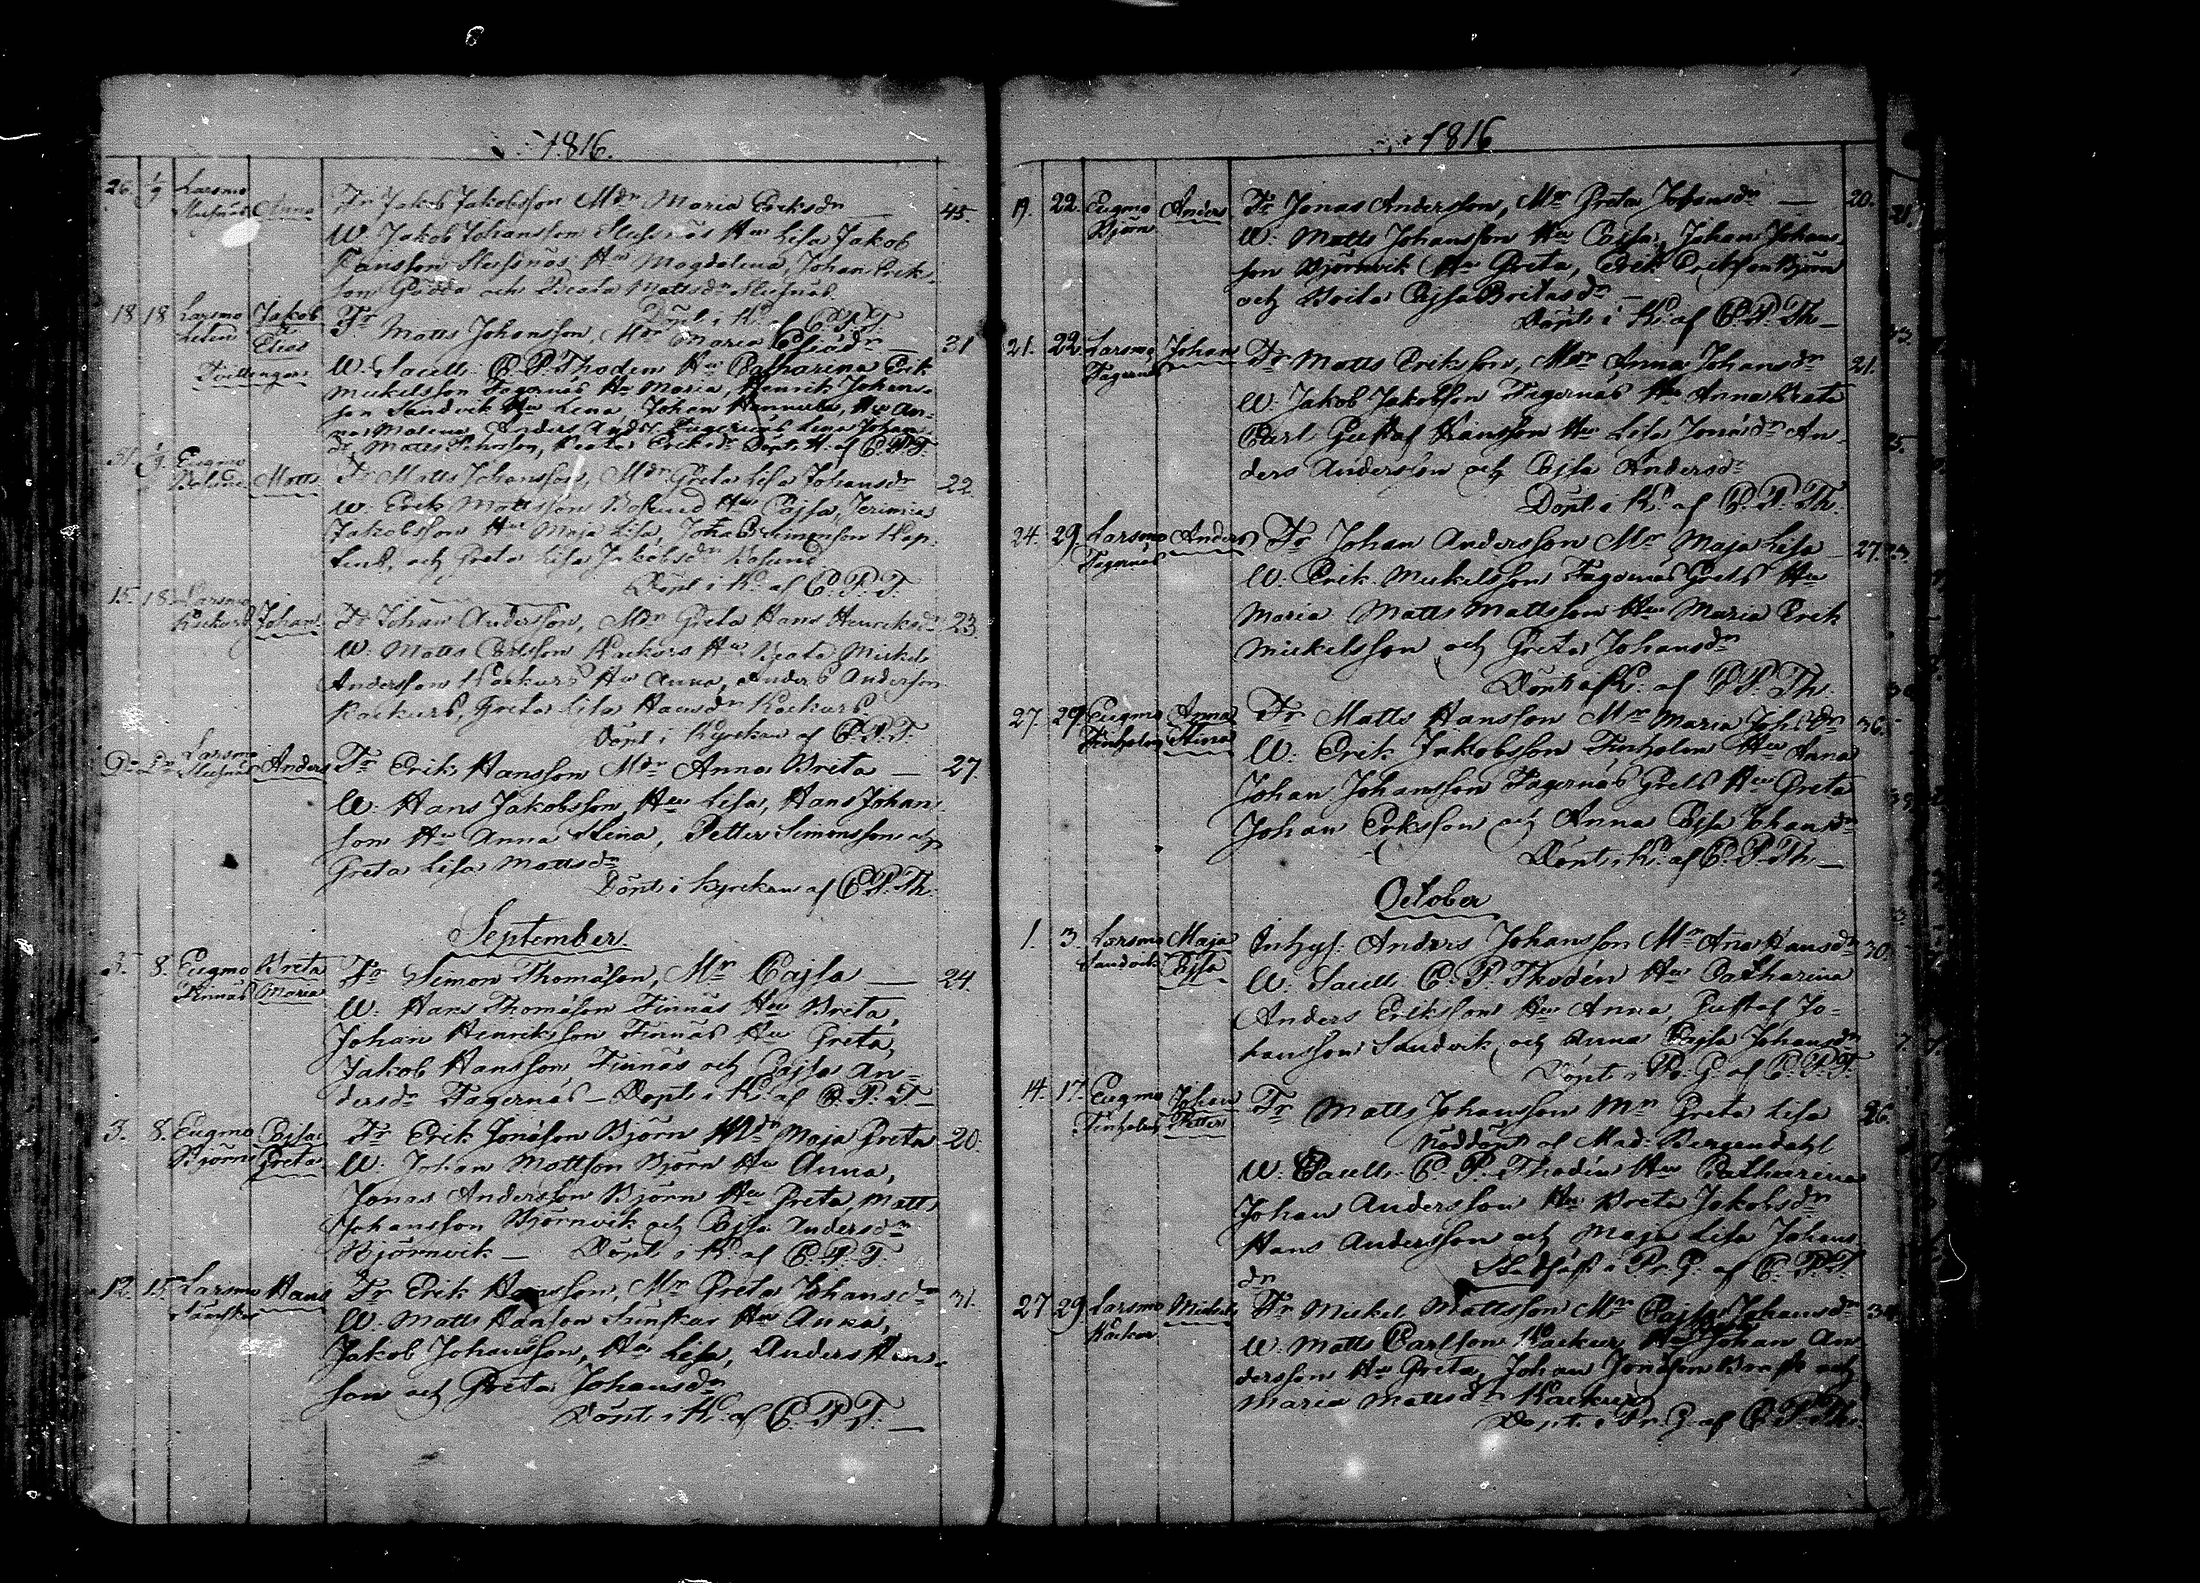 1816.
26. 1/9 Larsmo
Slussnäs Anna Fr Jakob Jakobsson Mdr Maria Eriksdr — 45.
W. Jakob Johansson Slussnäs Hu Lisa Jakob
Hansson Slussnäs Hu Magdalena, Johan Erik-
son Gädda och Beata Mattsdr Slussnäs.
Döpt i K. af C. P. T.
18 18 Larsmo Jakob Fr Matts Johansson, Mdr Maria Eliædr — 31
Liten Elias
Tvillingar W. Sacell. C. P. Thodén Hu Catharina Erik
Mickelsson Fagernäs Hu Maria, Henrik Johans-
son Sandvik Hu Lena, Johan Hu An-
na Malena, Anders Lena Johans-
dr, Matts Johansson, Beata Eriksdr Döpt K. af C. P. T.
31. 1/9. Eugmo
Bosund Matts Fr Matts Johansson, Mdr Greta Lisa Johansdr 22.
W. Erik Mattsson Bosund Hu Cajsa, Jerimias
Jakobsson Hu Maja Lisa, Johan Simonsson Kap-
lens, och Greta Lisa Jakobsdr Bosund
Döpt i K. af C. P. T.
15. 18. Larsmo
Kackurs Johan Fr Johan Andersson, Mdr Greta Hans Henriksdr 23.
W. Matts Carlsson Kackurs Hu Beata Mickel
Andersson Kackurs Hu Anna, Anders Anderson
Kackurs, Greta Lisa Hansdr Kackurs
Döpt i Kyrckan af C. P. T.
Do Do Larsmo
Slussnäs Anders Fr Erik Hansson Mdr Anna Brita — 27
W. Hans Jakobsson, Hu Lisa, Hans Johan-
son Hu Anna Stina, Petter Simonsson och
Greta Lisa Mattsdr
Döpt i Kyrckan af C. P. Th.
September
3. 8. Eugmo Brita Fr Simon Thomasson, Mr Cajsa — 24.
Finnäs Maria
W. Hans Thomasson Finnäs Hu Brita,
Johan Henriksson Finnäs Hu Greta,
Jakob Hansson Finnäs och Cajsa An-
dersdr Fagernäs — Döpt i K. af C. P. T —
3. 8. Eugmo Cajsa Fr Erik Jonasson Björn Mdr Maja Greta 20.
Björn Greta W. Johan Mattson Björn Hu Anna,
Jonas Andersson Björn Hu Greta, Matts
Johansson Björnvik och Cajsa Andersdr
Björnvik — Döpt i K. af C. P. T.
12. 15. Larsmo Hans Fr Erik Hansson, Mr Greta Johansdr 31.
W. Matts Hanson Hu Anna,
Jakob Johansson, Hu Lisa, Anders Hans-
son och Greta Johansdr
Döpt i K. af C. P. T. —
1816
19. 22. Eugmo Anders Fr Jonas Andersson, Mr Greta Johansdr — 20.
Björn
W. Matts Johansson Hu Cajsa, Johan Johans-
son Björnvik Hu Greta, Erik Erikson Björn
och Brita Cajsa Britasdr —
Döpt i K. af C. P. Th —
21. 22. Larsmo Johan Fr Matts Eriksson, Mdr Anna Johansdr 21.
Fagernäs
W. Jakob Jakobsson Fagernäs Hu Anna Beata
Carl Gustaf Hansson Hu Lisa Jonasdr An-
ders Andersson och Cajsa Andersdr
Döpt i K. af C. P. Th.
24. 29. Larsmo Anders Fr Johan Andersson Mr Maja Lisa — 27.
Fagernäs
W. Erik Mickelsson Fagernäs Grels Hu
Maria Matts Mattsson Hu Maria Erik
Mickelsson och Greta Johansdr
Döpt i K. af C. P. Th.
27. 29 Eugmo Anna Fr Matts Hansson Mr Maria Joh:sdr 36.
Finholm Stina
W. Erik Jakobsson Finholm Hu Anna
Johan Johansson Fagernäs Grels Hu Greta
Johan Eriksson och Anna Cajsa Johansdr
Döpt i K. af C. P. Th —
October
1. 3. Larsmo Maja Inhys. Anders Johansson Mr Anna Hansdr 30.
Sandvik Cajsa
W. Sacell. C. P. Thodén Hu Catharina
Anders Eriksson Hu Anna, Gustaf Jo-
hansson Sandvik och Anna Cajsa Johansdr
Döpt i Pr. G. af C. P. T.
14. 17. Eugmo Johan Fr Matts Johansson Mr Greta Lisa 26.
Finholm Petter
Nöddöpt af Mad: Bergendahl
W. Sacell. C. P. Thodén Hu Catharina
Johan Andersson Hu Brita Jakobsdr
Hans Andersson och Maja Lisa Johans-
dr Stadfäst i Pr. G. af C. P. T.
27 29. Larsmo Mickel Fr Mickel Mattsson Mr Cajsa Johansdr 34
Kackur
W. Matts Carlson Kackur Hu Johan An-
dersson Hu Greta, Johan Jonasson och
Maria Mattsdr Kackur
Döpt i Pr. G. af C. P. Th.